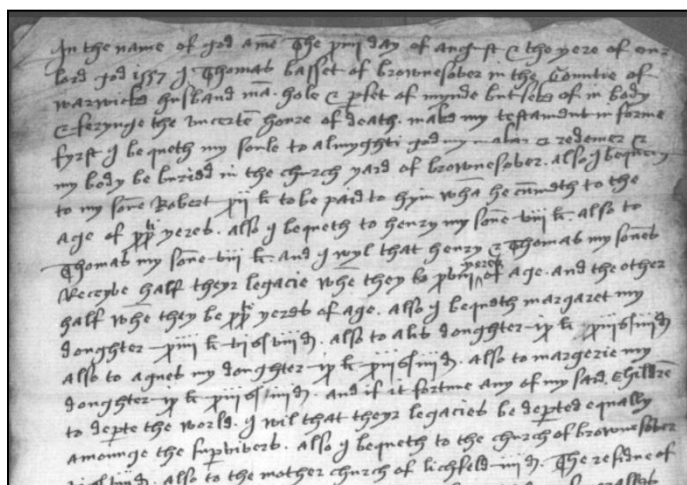 In the name of god amē The xiii day of august & the yere of our
lord god 1557 I Thomas basset of brownesover in the Countie of
warwicke husband mā. hole & pfet of mynde but seke of in body
& ferynge the uncertē houre of death. make my testament in forme
fyrst I bequeth my soule to almyghti god my maker & redemer &
my body be buried in the church yard of brownesover. also I bequeth
to my sone Robert xii li to be paid to hym whā he cūmeth to the
age of xx yeres. also I bequeth to henry my sone viii li. also to
Thomas my sone viii li. and I wyl that henry & Thomas my sones
Receyve half theyr legacie whē they be xviii yeres of age. and the other
half whē they be xx yeres of age. also I bequeth margaret my
doughter xiii li vi s viii d. also to alis doughter ix li xiii s iiii d.
also to agnes my doughter ix li xiii s iiii d. also to margerie my
doughter ix li xiii s iiii d. and if it fortune any of my said Children
to depte the world. I wil that theyr legacies be depted equally
amounge the survivers. also I bequeth to the church of brownesover
iiii d. also to the mother church of lichfeld iiii d. The residue of